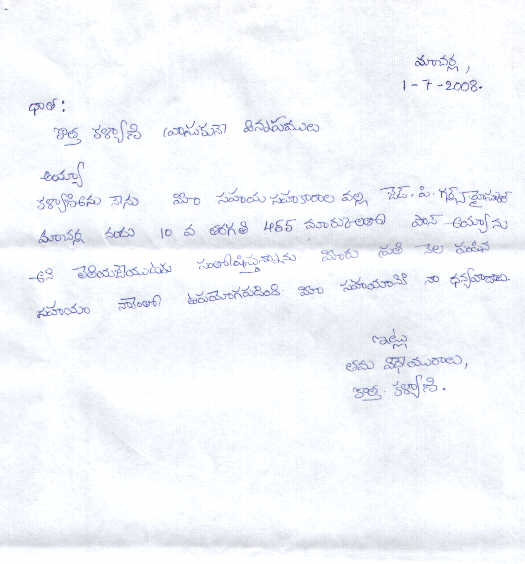 మాచర్ల,
1-7-2008.
దాత:
కొత్త కళ్యాణి వ్రాసుకునే విన్నపములు
అయ్యా
కళ్యాణిఅను నేను మీ సహాయ సహకారాల వల్ల జెడ్.పి. గర్ల్స్ హైస్కూల్
మాచర్ల నందు 10 వ తరగతి 465 మార్కులతో పాస్ అయ్యాను
అని తెలియజేయుటకు సంతోషిస్తున్నాను మీరు ప్రతి నెల పంపిన
సహాయం నాకెంతో ఉపయోగపడింది మీ సహాయానికి నా ధన్యవాదాలు.
ఇట్లు
తమ విధేయురాలు,
కొత్త. కళ్యాణి.